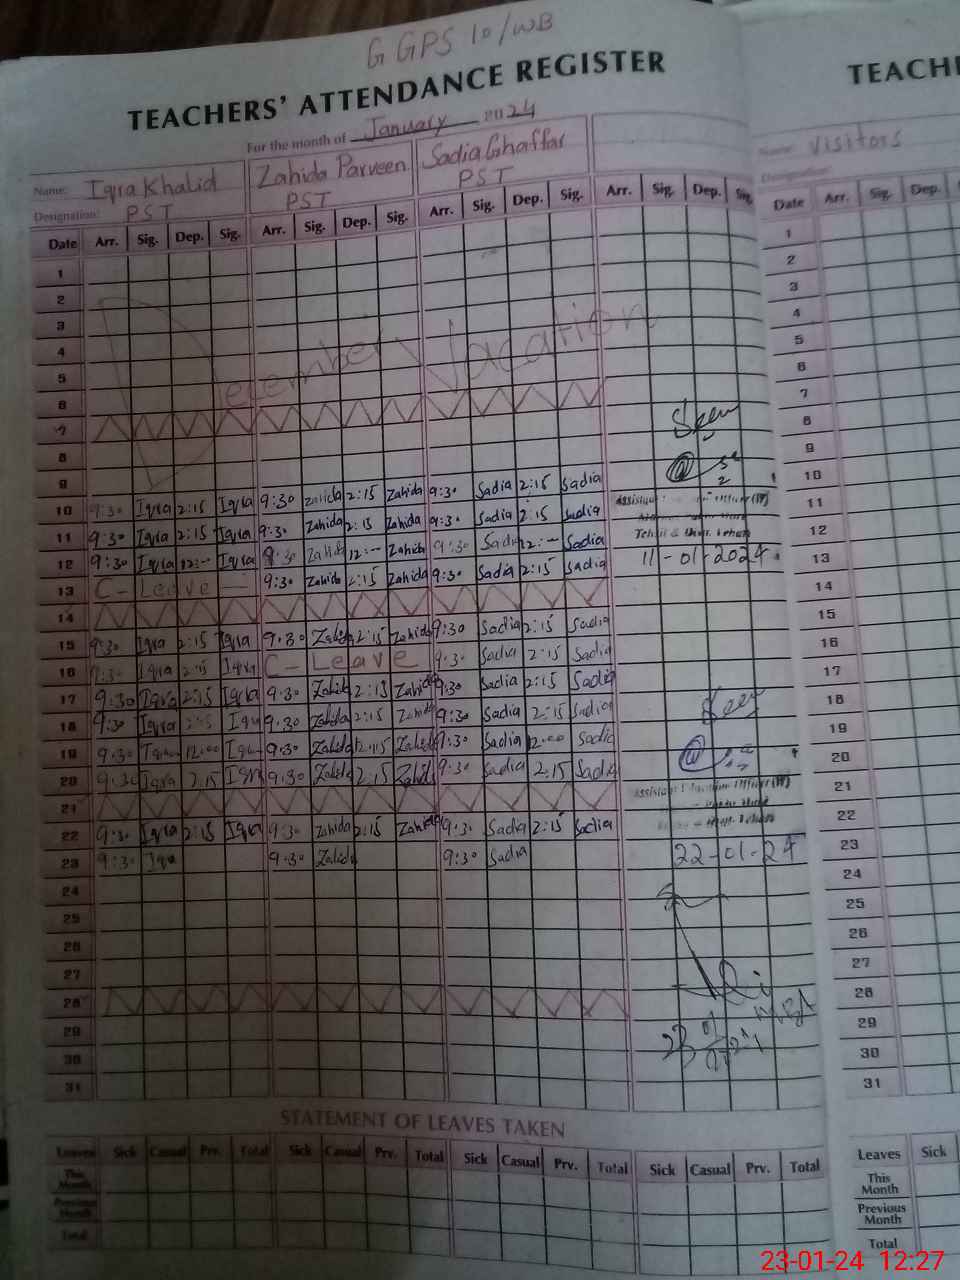 GGPS 10/WB
TEACHERS' ATTENDANCE REGISTER
For the month of January 2024
Name: Iqra Khalid Zahida Parveen Sadia Ghaffar
Designation: PST PST PST
Date Arr. Sig. Dep. Sig. Arr. Sig. Dep. Sig. Arr. Sig. Dep. Sig. Arr. Sig. Dep. Sig.
1
2
3
4
5
6
7
8
9
December Vacation
10 9:30 Iqra 2:15 Iqra 9:30 Zahida 2:15 Zahida 9:30 Sadia 2:15 Sadia
11 9:30 Iqra 2:15 Iqra 9:30 Zahida 2:15 Zahida 9:30 Sadia 2:15 Sadia
12 9:30 Iqra 12:— Iqra 9:30 Zahida 12:— Zahida 9:30 Sadia 12:— Sadia
13 C-Leave 9:30 Zahida 2:15 Zahida 9:30 Sadia 2:15 Sadia
14
15 9:30 Iqra 2:15 Iqra 9:30 Zahida 2:15 Zahida 9:30 Sadia 2:15 Sadia
16 9:30 Iqra 2:15 Iqra C-Leave 9:30 Sadia 2:15 Sadia
17 9:30 Iqra 2:15 Iqra 9:30 Zahida 2:15 Zahida 9:30 Sadia 2:15 Sadia
18 9:30 Iqra 2:15 Iqra 9:30 Zahida 2:15 Zahida 9:30 Sadia 2:15 Sadia
19 9:30 Iqra 12:00 Iqra 9:30 Zahida 12:15 Zahida 9:30 Sadia 12:00 Sadia
20 9:30 Iqra 2:15 Iqra 9:30 Zahida 2:15 Zahida 9:30 Sadia 2:15 Sadia
21
22 9:30 Iqra 2:15 Iqra 9:30 Zahida 2:15 Zahida 9:30 Sadia 2:15 Sadia
23 9:30 Iqra 9:30 Zahida 9:30 Sadia
24
25
26
27
28
29
30
31
Seen
Assistant Officer (W)
11-01-2024
Seen
Assistant Officer (W)
22-01-24
STATEMENT OF LEAVES TAKEN
Leaves Sick Casual Prv. Total Sick Casual Prv. Total Sick Casual Prv. Total Sick Casual Prv. Total
This Month
Previous Month
Total
TEACH
Name: Visitors
Designation:
Date Arr. Sig. Dep.
1
2
3
4
5
6
7
8
9
10
11
12
13
14
15
16
17
18
19
20
21
22
23
24
25
26
27
28
29
30
31
Leaves Sick
This Month
Previous Month
Total
23-01-24 12:27